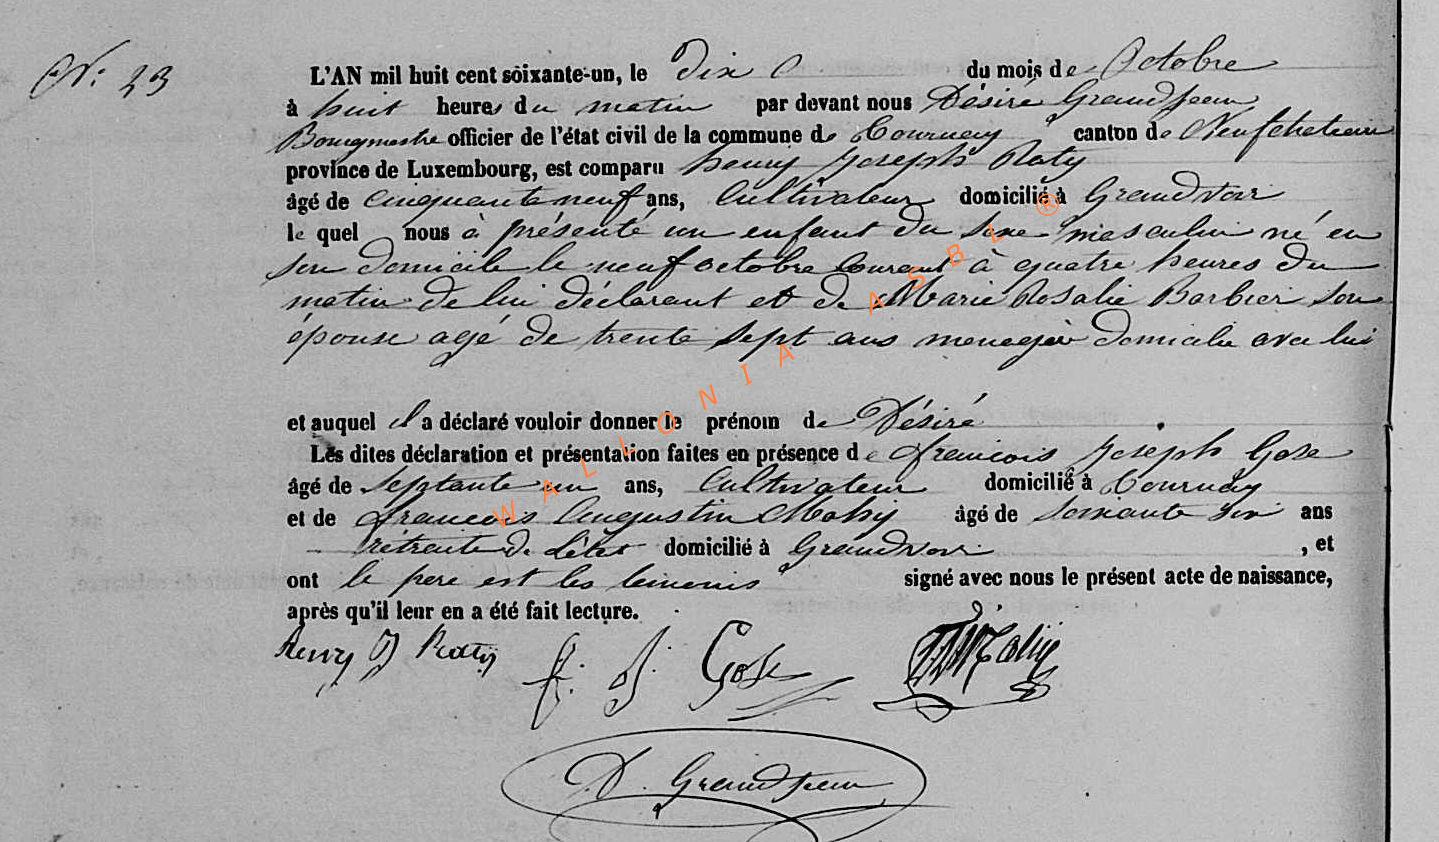 N: 23
L'AN mil huit cent soixante-un, le dix du mois de Octobre
à huit heures du matin par devant nous Désiré Grandjean
Bourgmestre officier de l'état civil de la commune de Tournay canton de Neufchateau
province de Luxembourg, est comparu henry Joseph Roty
âgé de cinquante neuf ans, Cultivateur domicilié à Grandvoir
le quel nous à présenté un enfant du sexe masculin né en
son domicile le neuf octobre courant à quatre heures du
matin de lui déclarant et de Marie Rosalie Barbier son
épouse agé de trente sept ans menagère domicilie avec lui
et auquel il a déclaré vouloir donner le prénom de Désiré
Les dites déclaration et présentation faites en présence de francois Joseph Gose
âgé de septante un ans, Cultivateur domicilié à Tournay
et de francois Augustin âgé de soixante six ans
rétraite de l'état domicilié à Grandvoir , et
ont le pere est les temenis signé avec nous le présent acte de naissance,
après qu'il leur en a été fait lecture.
Henry J Roty f. J. Gose
D. Grandjean
WALLONIA ASBL ®